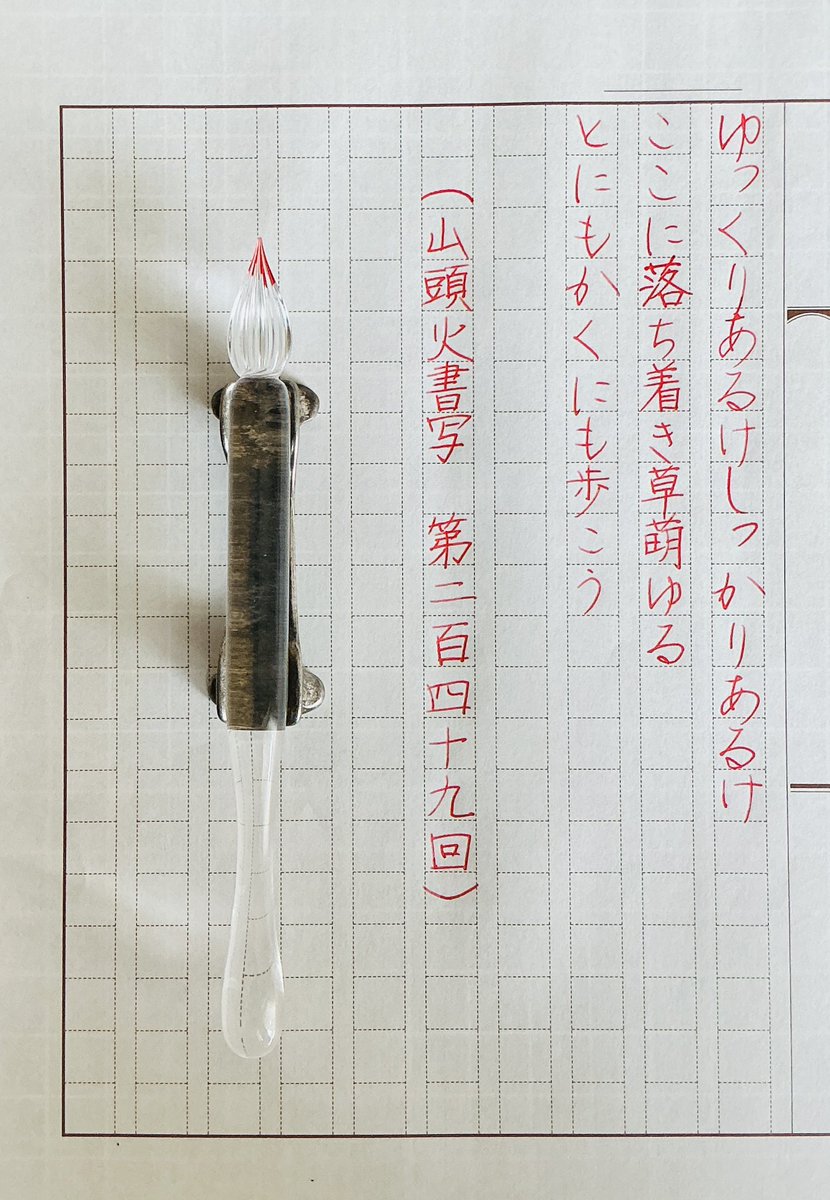 ゆっくりあるけしっかりあるけ
ここに落ち着き草萌ゆる
とにもかくにも歩こう
(山頭火書写　第二百四十九回)